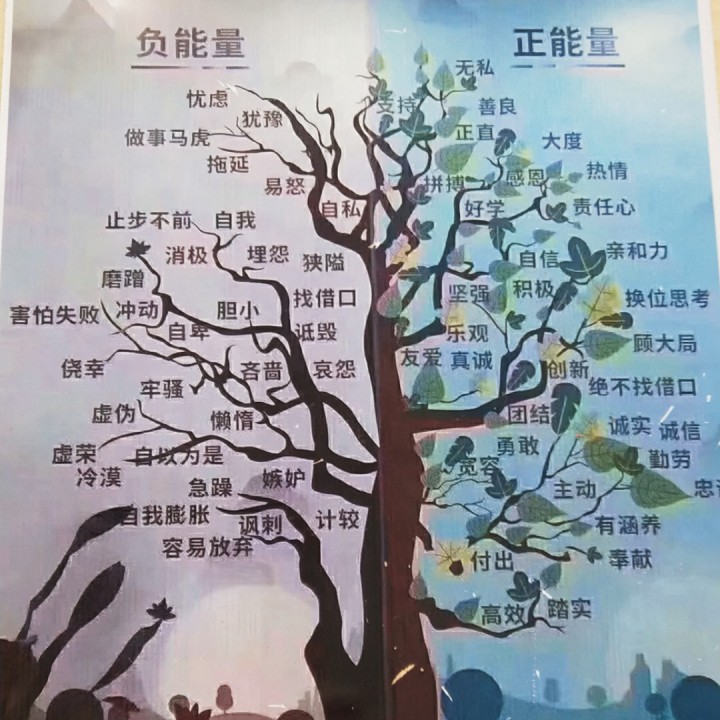 负能量
忧虑
犹豫
做事马虎
拖延
易怒
自私
止步不前
自我
消极
埋怨
狭隘
磨蹭
害怕失败
冲动
胆小
找借口
自卑
诋毁
侥幸
吝啬
哀怨
牢骚
虚伪
懒惰
虚荣
自以为是
冷漠
急躁
嫉妒
自我膨胀
讽刺
计较
容易放弃
正能量
无私
支持
善良
正直
大度
拼搏
感恩
热情
好学
责任心
自信
亲和力
坚强
积极
换位思考
乐观
顾大局
友爱
真诚
创新
绝不找借口
团结
诚实
诚信
勇敢
宽容
勤劳
主动
忠
有涵养
付出
奉献
高效
踏实